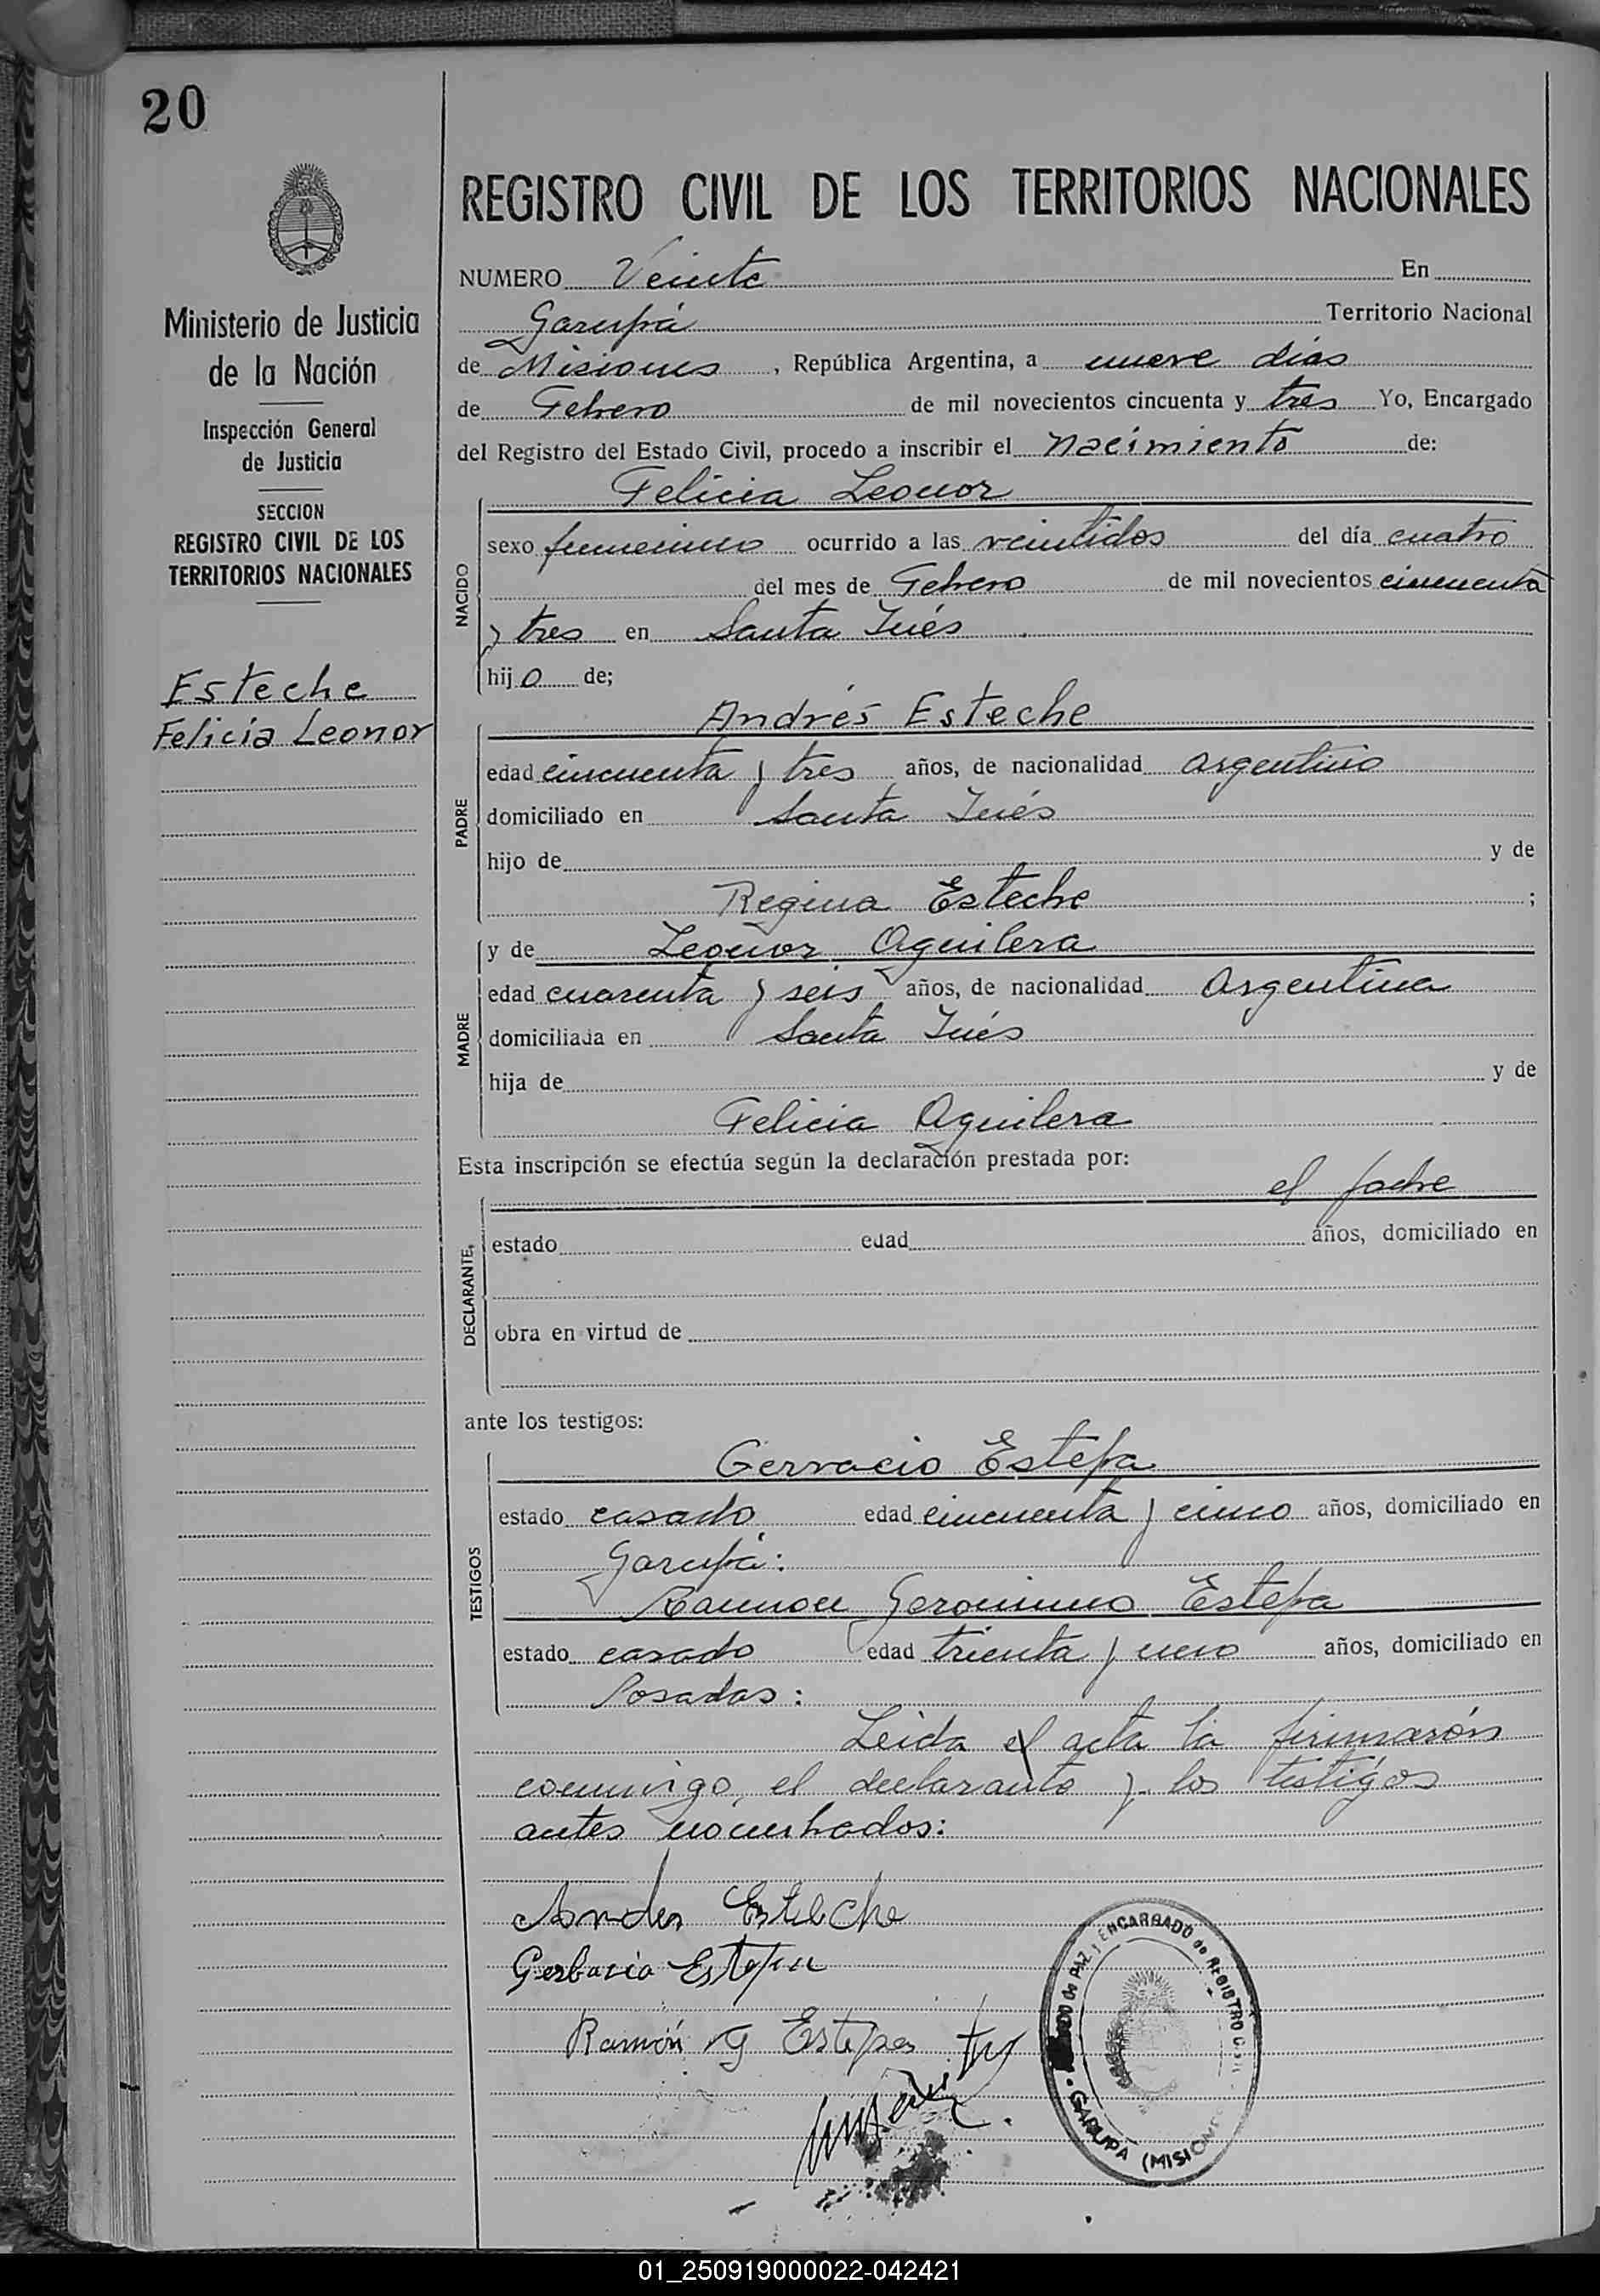 20
REGISTRO CIVIL DE LOS TERRITORIOS NACIONALES
Ministerio de Justicia
de la Nación
Inspección General
de Justicia
SECCION
REGISTRO CIVIL DE LOS
TERRITORIOS NACIONALES
Esteche
Felicia Leonor
NUMERO Veinte En
Garupá Territorio Nacional
de Misiones, República Argentina, a nueve dias
de Febrero de mil novecientos cincuenta y tres Yo, Encargado
del Registro del Estado Civil, procedo a inscribir el nacimiento de:
NACIDO
Felicia Leonor
sexo femenino ocurrido a las veintidos del día cuatro
del mes de Febrero de mil novecientos cincuenta
y tres en Santa Inés
hijo de;
PADRE
Andrés Esteche
edad cincuenta y tres años, de nacionalidad argentino
domiciliado en Santa Inés
hijo de y de
Regina Esteche ;
MADRE
y de Leonor Aguilera
edad cuarenta y seis años, de nacionalidad Argentina
domiciliada en Santa Inés
hija de y de
Felicia Aguilera
Esta inscripción se efectúa según la declaración prestada por:
DECLARANTE,
el padre
estado edad años, domiciliado en
obra en virtud de
ante los testigos:
TESTIGOS
Gervacio Estepa
estado casado edad cincuenta y cinco años, domiciliado en
Garupá:
Ramon Geronimo Estepa
estado casado edad trienta y uno años, domiciliado en
Posadas:
Leida el acta la firmarón
conmigo, el declarante y los testigos
antes nombrados:
Andres Esteche
Gerbacio Estepa
Ramón G Estepa
DE PAZ Y ENCARGADO de REGISTRO CIVIL
GARUPA (MISIONES
01_250919000022-042421